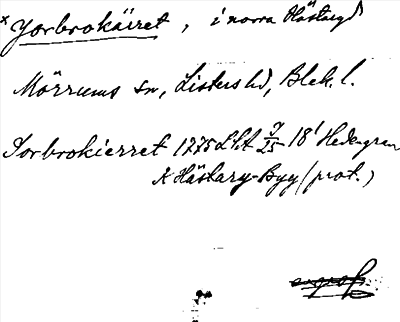 × Yorbrokäiret, i norra Hästaryd
Mörrums sn, Listers hd, Blek. l.
Sorbrokierret 1775 Lht 9/25 18' Hedengran
K Hästary-Byy (prot.)